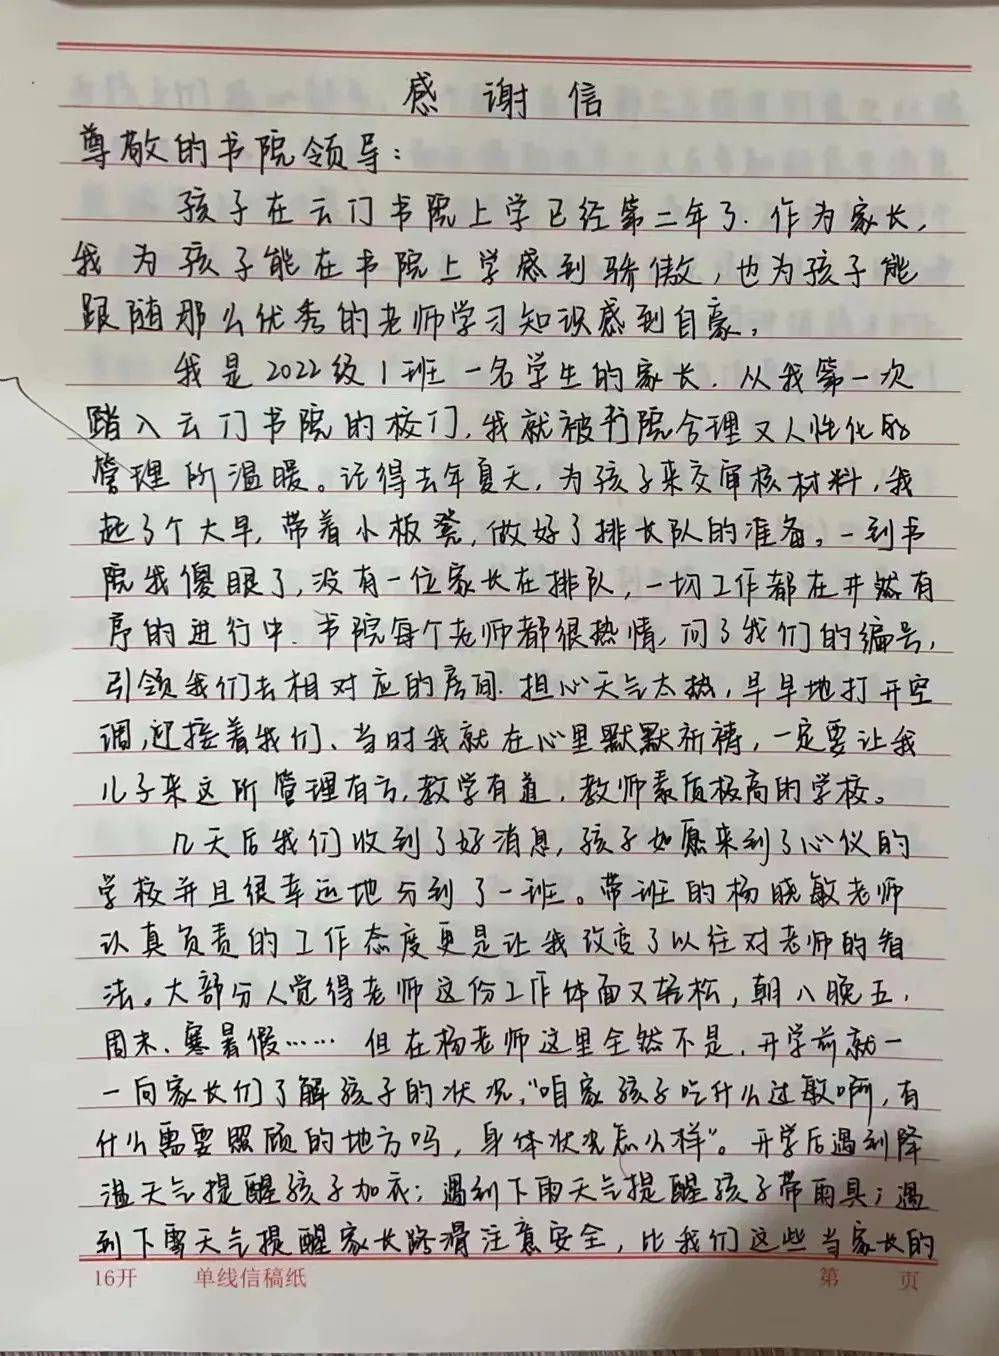 感谢信
尊敬的书院领导：
孩子在云门书院上学已经第二年了.作为家长,
我为孩子能在书院上学感到骄傲，也为孩子能
跟随那么优秀的老师学习知识感到自豪。
我是2022级1班一名学生的家长.从我第一次
踏入云门书院的校门,我就被书院合理又人性化的
管理所温暖。记得去年夏天,为孩子来交审核材料,我
起了个大早,带着小板凳,做好了排长队的准备。一到书
院我傻眼了,没有一位家长在排队,一切工作都在井然有
序的进行中.书院每个老师都很热情,问了我们的编号,
引领我们去相对应的房间.担心天气太热,早早地打开空
调,迎接着我们、当时我就在心里默默祈祷,一定要让我
儿子来这所管理有方,教学有道,教师素质极高的学校。
几天后我们收到了好消息,孩子如愿来到了心仪的
学校并且很幸运地分到了一班。带班的杨晓敏老师
认真负责的工作态度更是让我改变了以往对老师的看
法。大部分人觉得老师这份工作体面又轻松,朝八晚五,
周末、寒暑假……但在杨老师这里全然不是,开学前就一
一向家长们了解孩子的状况,“咱家孩子吃什么过敏啊,有
什么需要照顾的地方吗,身体状况怎么样”。开学后遇到降
温天气提醒孩子加衣;遇到下雨天气提醒孩子带雨具;遇
到下雪天气提醒家长路滑注意安全,比我们这些当家长的
16开 单线信稿纸 第 页